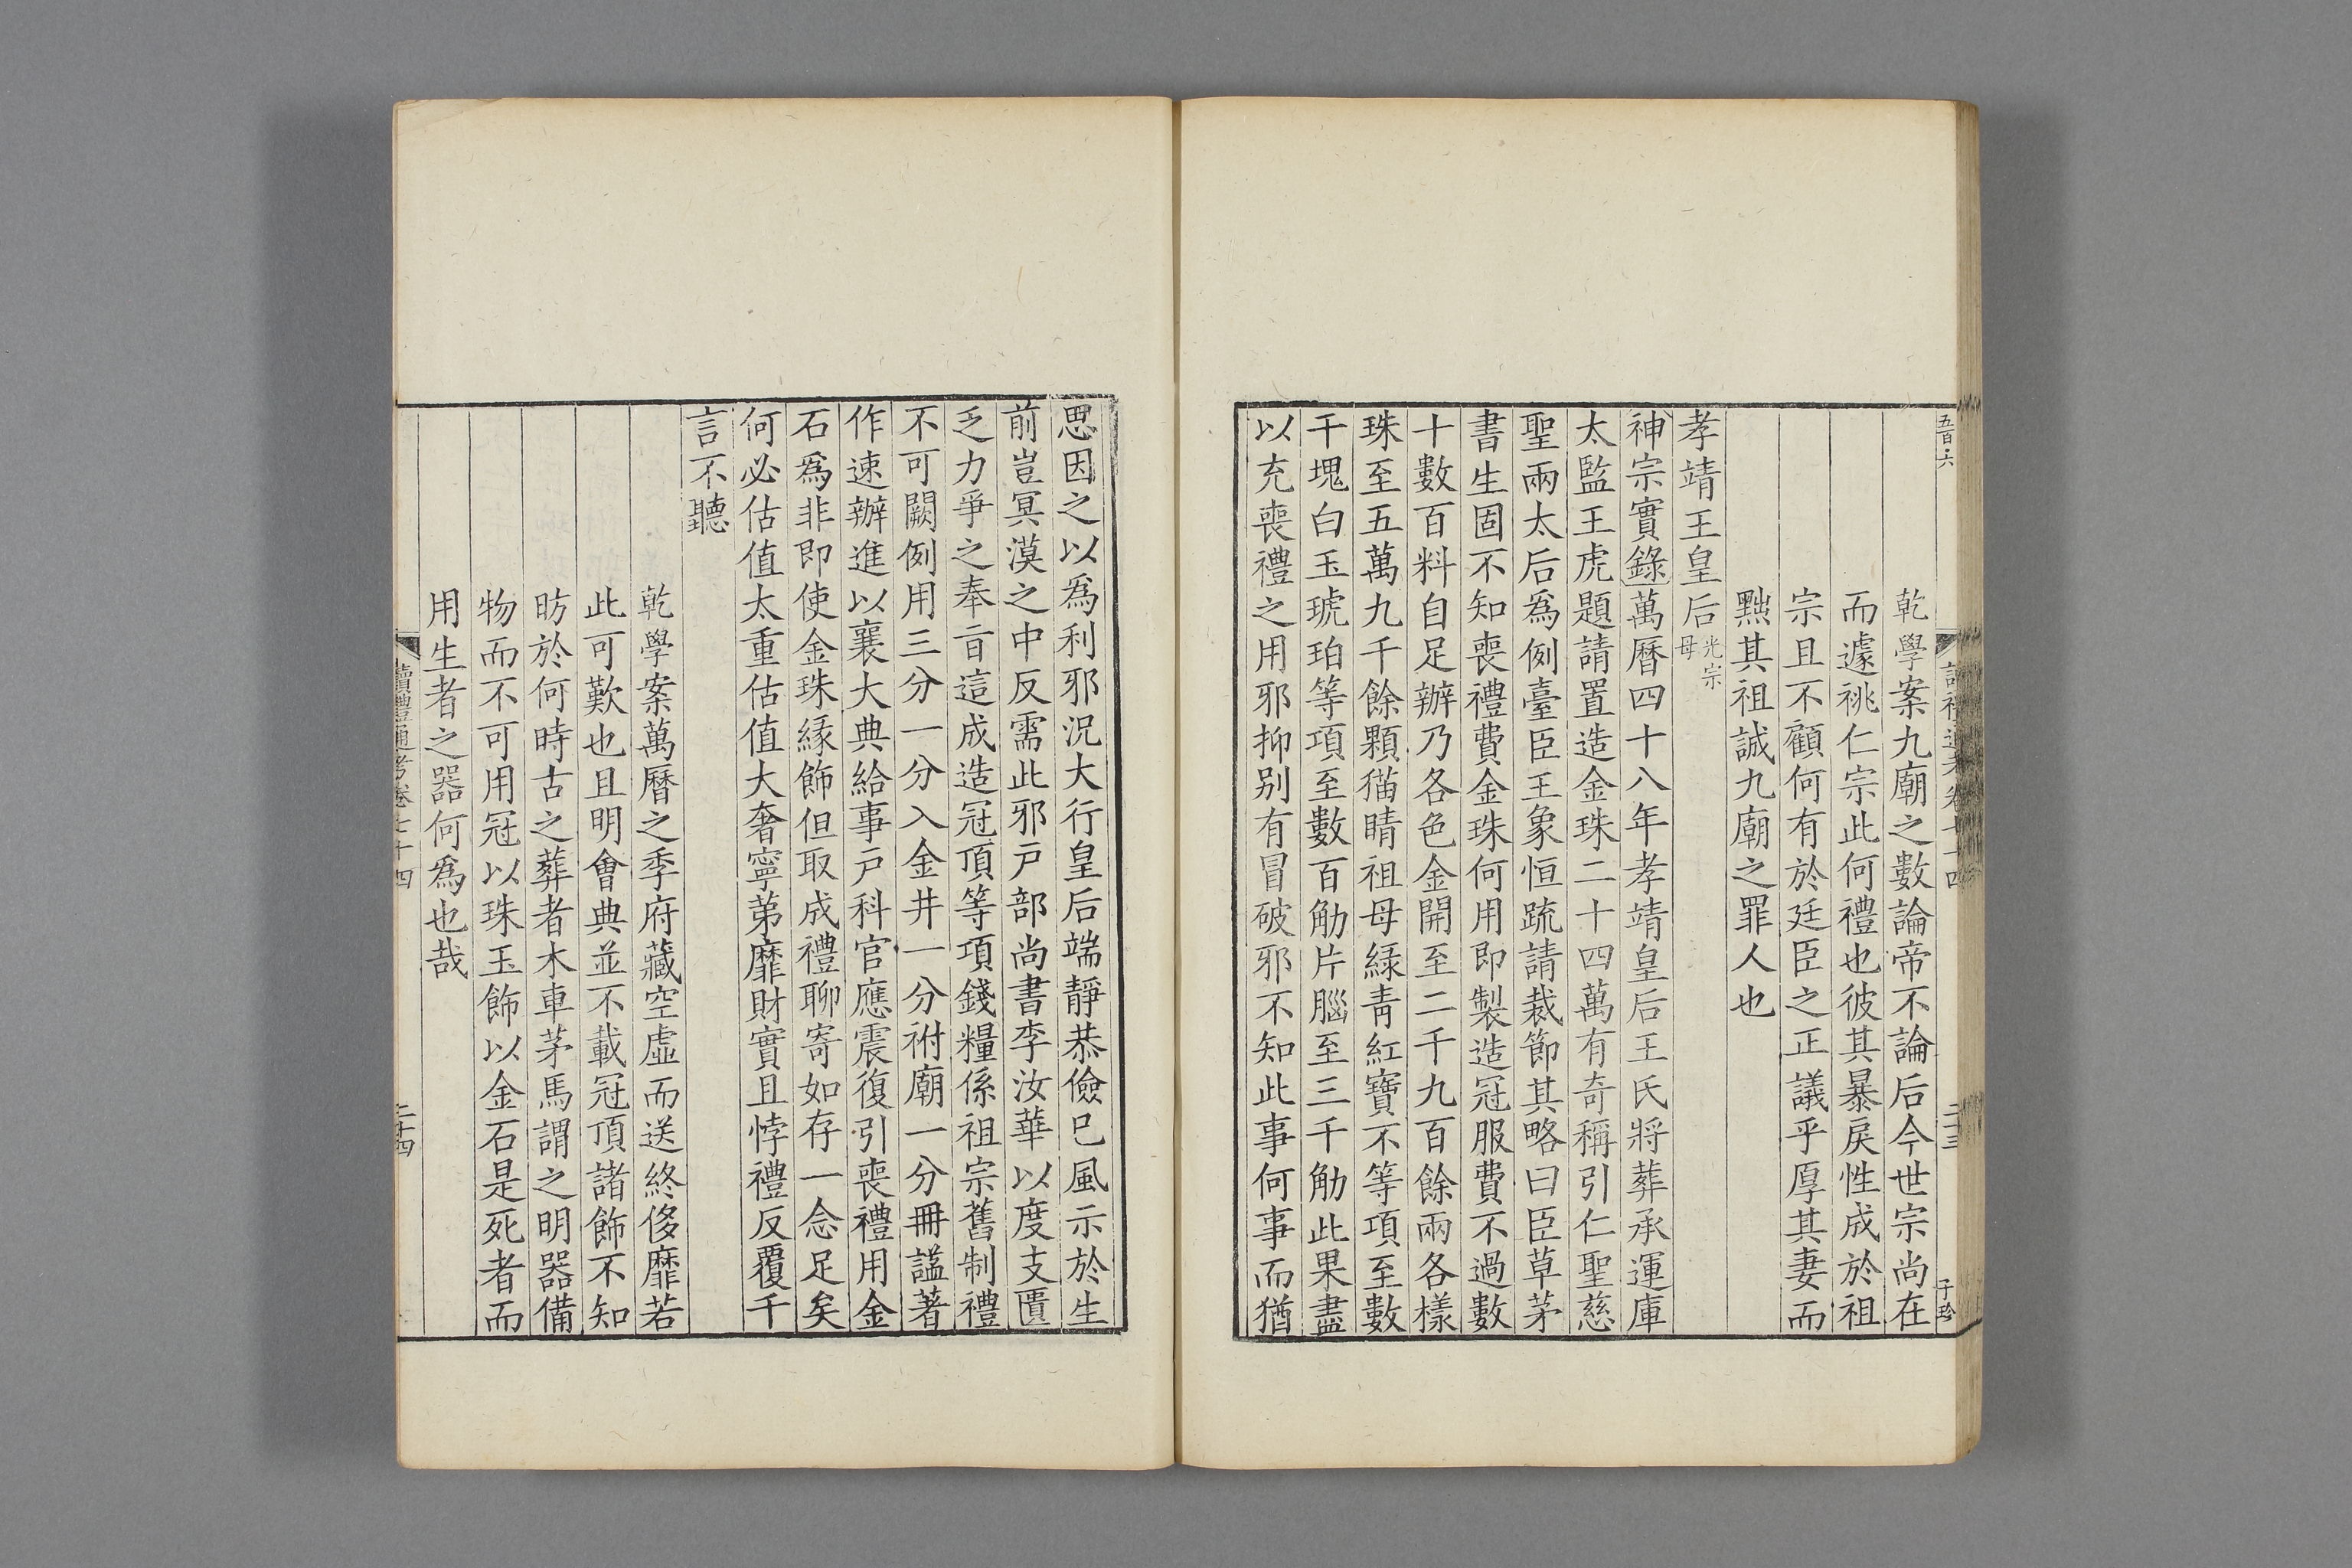 乾學案九廟之數論帝不論后今世宗尚在
而遽祧仁宗此何禮也彼其暴戾性成於祖
宗且不顧何有於廷臣之正議乎厚其妻而
黜其祖誠九廟之罪人也
孝靖王皇后光宗母
神宗實錄萬曆四十八年孝靖皇后王氏將葬承運庫
太監王虎題請置造金珠二十四萬有奇稱引仁聖慈
聖兩太后爲例臺臣王象恒疏請裁節其略曰臣草茅
書生固不知喪禮費金珠何用即製造冠服費不過數
十數百料自足辦乃各色金開至二千九百餘兩各樣
珠至五萬九千餘顆猫睛祖母緑青紅寶不等項至數
千塊白玉琥珀等項至數百觔片腦至三千觔此果盡
以充喪禮之用邪抑别有冒破邪不知此事何事而猶
思因之以爲利邪況大行皇后端靜恭儉已風示於生
前豈冥漠之中反需此邪戸部尚書李汝華以度支匱
乏力爭之奉㫖這成造冠頂等項錢糧係祖宗舊制禮
不可闕例用三分一分入金井一分祔廟一分冊謚著
作速辦進以襄大典給事戸科官應震復引喪禮用金
石爲非即使金珠緣飾但取成禮聊寄如存一念足矣
何必估值太重估值大奢寧苐靡財實且悖禮反覆千
言不聽
乾學案萬曆之季府藏空虛而送終侈靡若
此可歎也且明會典並不載冠頂諸飾不知
昉於何時古之葬者木車茅馬謂之明器備
物而不可用冠以珠玉飾以金石是死者而
用生者之器何爲也哉
讀禮通考卷七十四
二十四